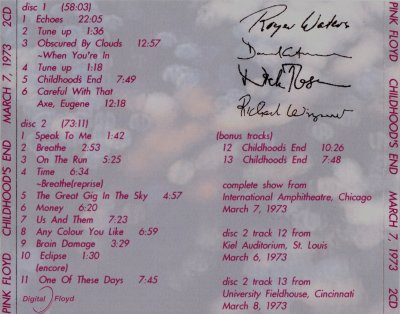 PINK FLOYD CHILDHOOD'S END MARCH 7, 1973 2CD
disc 1 (58:03)
1 Echoes 22:05
2 Tune up 1:36
3 Obscured By Clouds 12:57
~When You're In
4 Tune up 1:18
5 Childhoods End 7:49
6 Careful With That
Axe, Eugene 12:18
disc 2 (73:11)
1 Speak To Me 1:42
2 Breathe 2:53
3 On The Run 5:25
4 Time 6:34
~Breathe(reprise)
5 The Great Gig In The Sky 4:57
6 Money 6:20
7 Us And Them 7:23
8 Any Colour You Like 6:59
9 Brain Damage 3:29
10 Eclipse 1:30
(encore)
11 One Of These Days 7:45
Digital Floyd
Roger Waters
Nick Mason
Richard
(bonus tracks)
12 Childhoods End 10:26
13 Childhoods End 7:48
complete show from
International Amphitheatre, Chicago
March 7, 1973
disc 2 track 12 from
Kiel Auditorium, St. Louis
March 6, 1973
disc 2 track 13 from
University Fieldhouse, Cincinnati
March 8, 1973
PINK FLOYD CHILDHOOD'S END MARCH 7, 1973 2CD